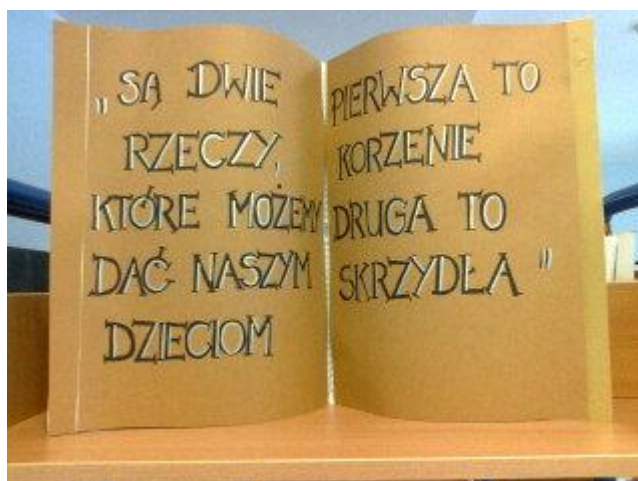 „SĄ DWIE
RZECZY,
KTÓRE MOŻEMY
DAĆ NASZYM
DZIECIOM
PIERWSZA TO
KORZENIE
DRUGA TO
SKRZYDŁA"